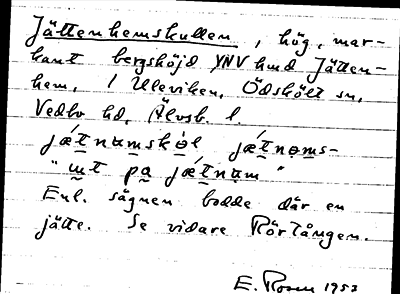 Jättenhemskullen, hög, mar-
kant bergshöjd YNV hmd Jätten-
hem, 1 Uleviken, Ödskölt sn,
Vedbo hd, Älvsb. l.
jǽtnɑmskòl jǽtnɑms-
"ut pa jǽtnɑm"
Enl. sägnen bodde där en
jätte. Se vidare Rörlången.
E. Rosen 1953